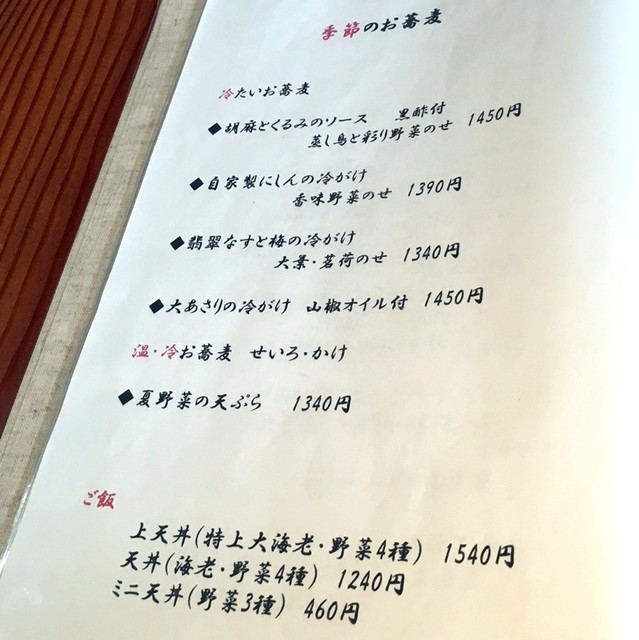 季節のお蕎麦
冷たいお蕎麦
◆胡麻とくるみのソース 黒酢付
蒸し鳥と彩り野菜のせ 1450円
◆自家製にしんの冷がけ
香味野菜のせ 1390円
◆翡翠なすと梅の冷がけ
大葉・茗荷のせ 1340円
◆大あさりの冷がけ 山椒オイル付 1450円
温・冷お蕎麦 せいろ・かけ
◆夏野菜の天ぷら 1340円
ご飯
上天丼(特上大海老・野菜4種) 1540円
天丼(海老・野菜4種) 1240円
ミニ天丼(野菜3種) 460円